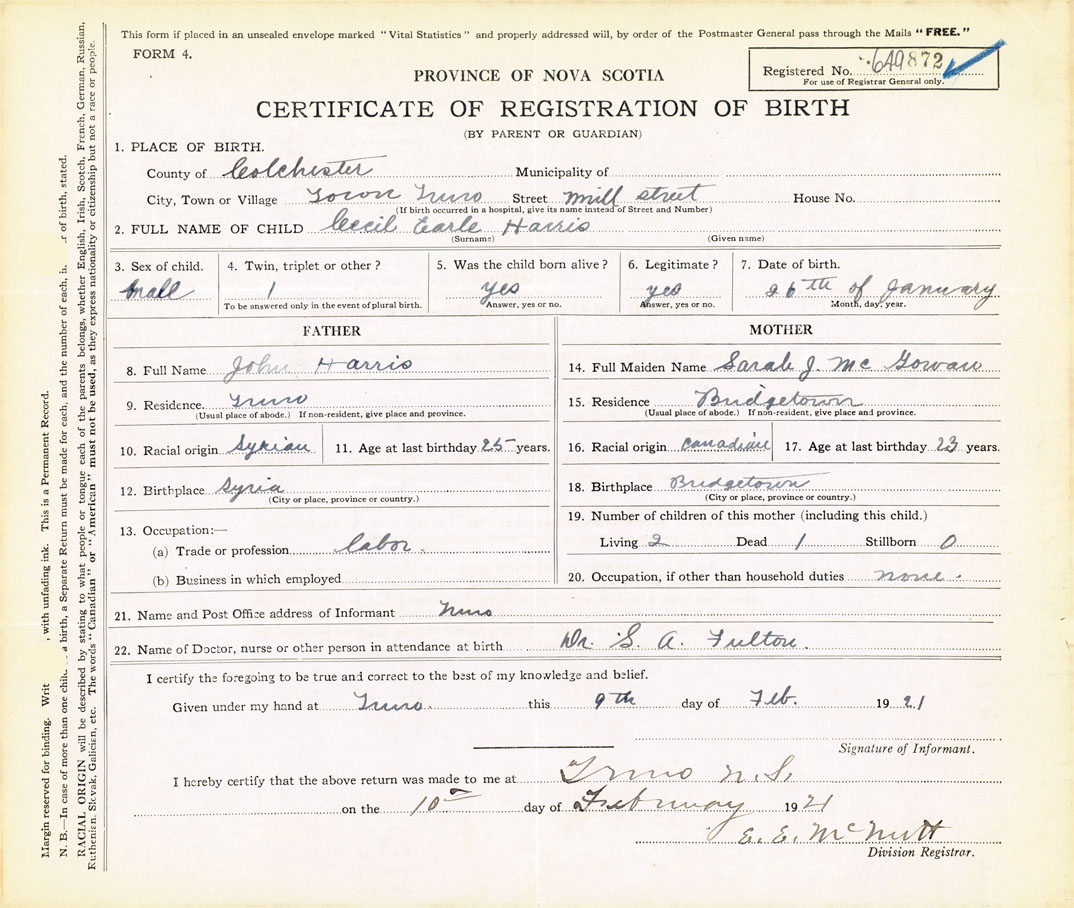 This form if placed in an unsealed envelope marked "Vital Statistics" and properly addressed will, by order of the Postmaster General pass through the Mails "FREE."
FORM 4.
Registered No. 649872
For use of Registrar General only.
PROVINCE OF NOVA SCOTIA
CERTIFICATE OF REGISTRATION OF BIRTH
(BY PARENT OR GUARDIAN)
1. PLACE OF BIRTH.
County of Colchester Municipality of
City, Town or Village Town Truro Street Mill Street House No.
(If birth occurred in a hospital, give its name instead of Street and Number)
2. FULL NAME OF CHILD Cecil Earle Harris
(Surname) (Given name)
3. Sex of child. 4. Twin, triplet or other? 5. Was the child born alive? 6. Legitimate? 7. Date of birth.
Mall 1 yes yes 26th of January
To be answered only in the event of plural birth. Answer, yes or no. Answer, yes or no. Month, day, year.
FATHER
8. Full Name John Harris
9. Residence Truro
(Usual place of abode.) If non-resident, give place and province.
10. Racial origin Syrian 11. Age at last birthday 25 years.
12. Birthplace Syria
(City or place, province or country.)
13. Occupation:—
(a) Trade or profession labor.
(b) Business in which employed
MOTHER
14. Full Maiden Name Sarah J. McGowan
15. Residence Bridgetown
(Usual place of abode.) If non-resident, give place and province.
16. Racial origin Canadian 17. Age at last birthday 23 years.
18. Birthplace Bridgetown
(City or place, province or country.)
19. Number of children of this mother (including this child.)
Living 2 Dead 1 Stillborn 0
20. Occupation, if other than household duties none.
21. Name and Post Office address of Informant Truro
22. Name of Doctor, nurse or other person in attendance at birth Dr. S. A. Fulton.
I certify the foregoing to be true and correct to the best of my knowledge and belief.
Given under my hand at Truro. this 9th day of Feb. 1921
Signature of Informant.
I hereby certify that the above return was made to me at Truro N.S.
on the 10th day of February 1921
E. E. McNutt
Division Registrar.
Margin reserved for binding. Writ , with unfading ink. This is a Permanent Record.
N. B.—In case of more than one chil. . a birth, a Separate Return must be made for each, and the number of each, i. .r of birth, stated.
RACIAL ORIGIN will be described by stating to what people or tongue each of the parents belongs, whether English, Irish, Scotch, French, German, Russian,
Ruthenian, Slovak, Galician, etc. The words "Canadian" or "American" must not be used, as they express nationality or citizenship but not a race or people.